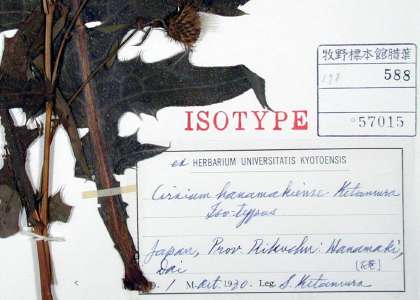 牧野標本館腊葉
588
57015
ISOTYPE
ex HERBARIUM UNIVERSITATIS KYOTOENSIS
Cirsium hanamakiense Kitamura
Iso-typus
Japan, Prov. Rikuchu: Hanamaki,
Dai
[花巻]
1 Oct. 1930 Leg. S. Kitamura